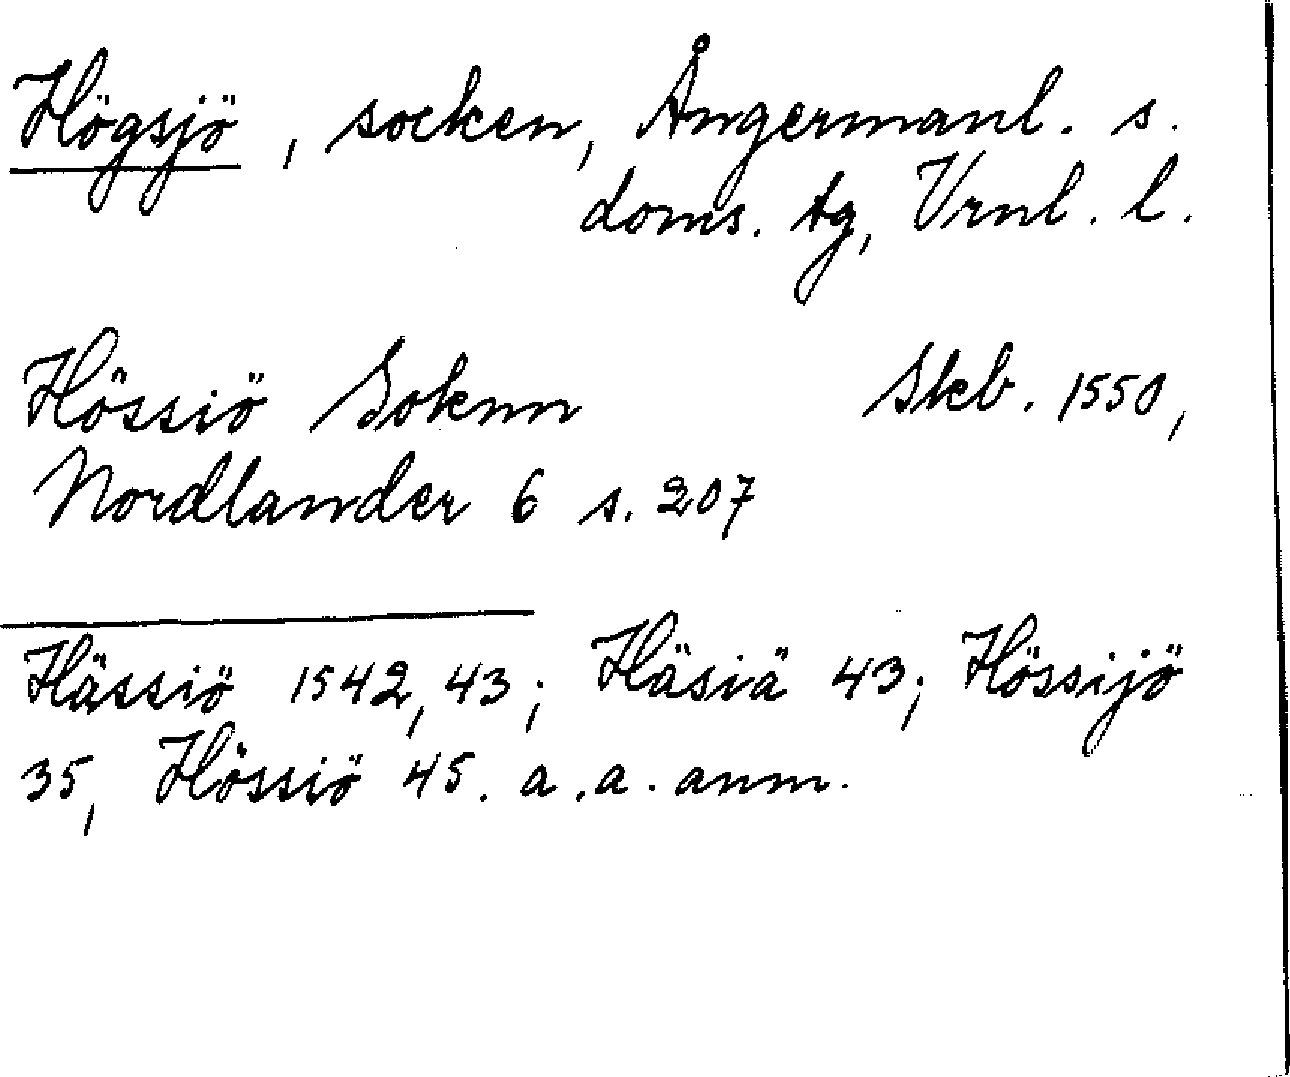 Högsjö, socken, Ångermanl. s.
doms. tg, Vrnl. l.
Hössiö Soknn Skb. 1550,
Nordlander 6 s. 207
Hässiö 1542, 43; Häsiä 43; Hössijö
35, Hössiö 45. a.a. anm.